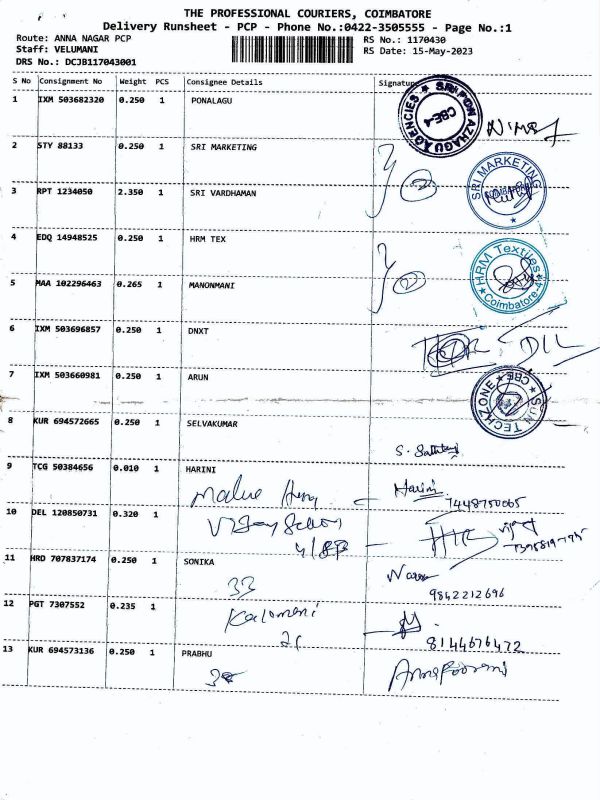 THE PROFESSIONAL COURIERS, COIMBATORE
Delivery Runsheet - PCP - Phone No.:0422-3505555 - Page No.:1
Route: ANNA NAGAR PCP RS No.: 1170430
Staff: VELUMANI RS Date: 15-May-2023
DRS No.: DCJB117043001
S No Consignment No Weight PCS Consignee Details Signature
1 IXM 503682320 0.250 1 PONALAGU
SRI PON AZHAGU AGENCIES CBE-4
2 STY 88133 0.250 1 SRI MARKETING
3 RPT 1234050 2.350 1 SRI VARDHAMAN
SRI MARKETING
4 EDQ 14948525 0.250 1 HRM TEX
HRM Textiles Coimbatore-4
5 MAA 102296463 0.265 1 MANONMANI
6 IXM 503696857 0.250 1 DNXT
7 IXM 503660981 0.250 1 ARUN
SUN TECHZONE CBE
8 KUR 694572665 0.250 1 SELVAKUMAR
9 TCG 50384656 0.010 1 HARINI
Harini
7448750065
10 DEL 120850731 0.320 1
11 HRD 707837174 0.250 1 SONIKA
33
9842212696
12 PGT 7307552 0.235 1 Kalomani
8144676472
13 KUR 694573136 0.250 1 PRABHU